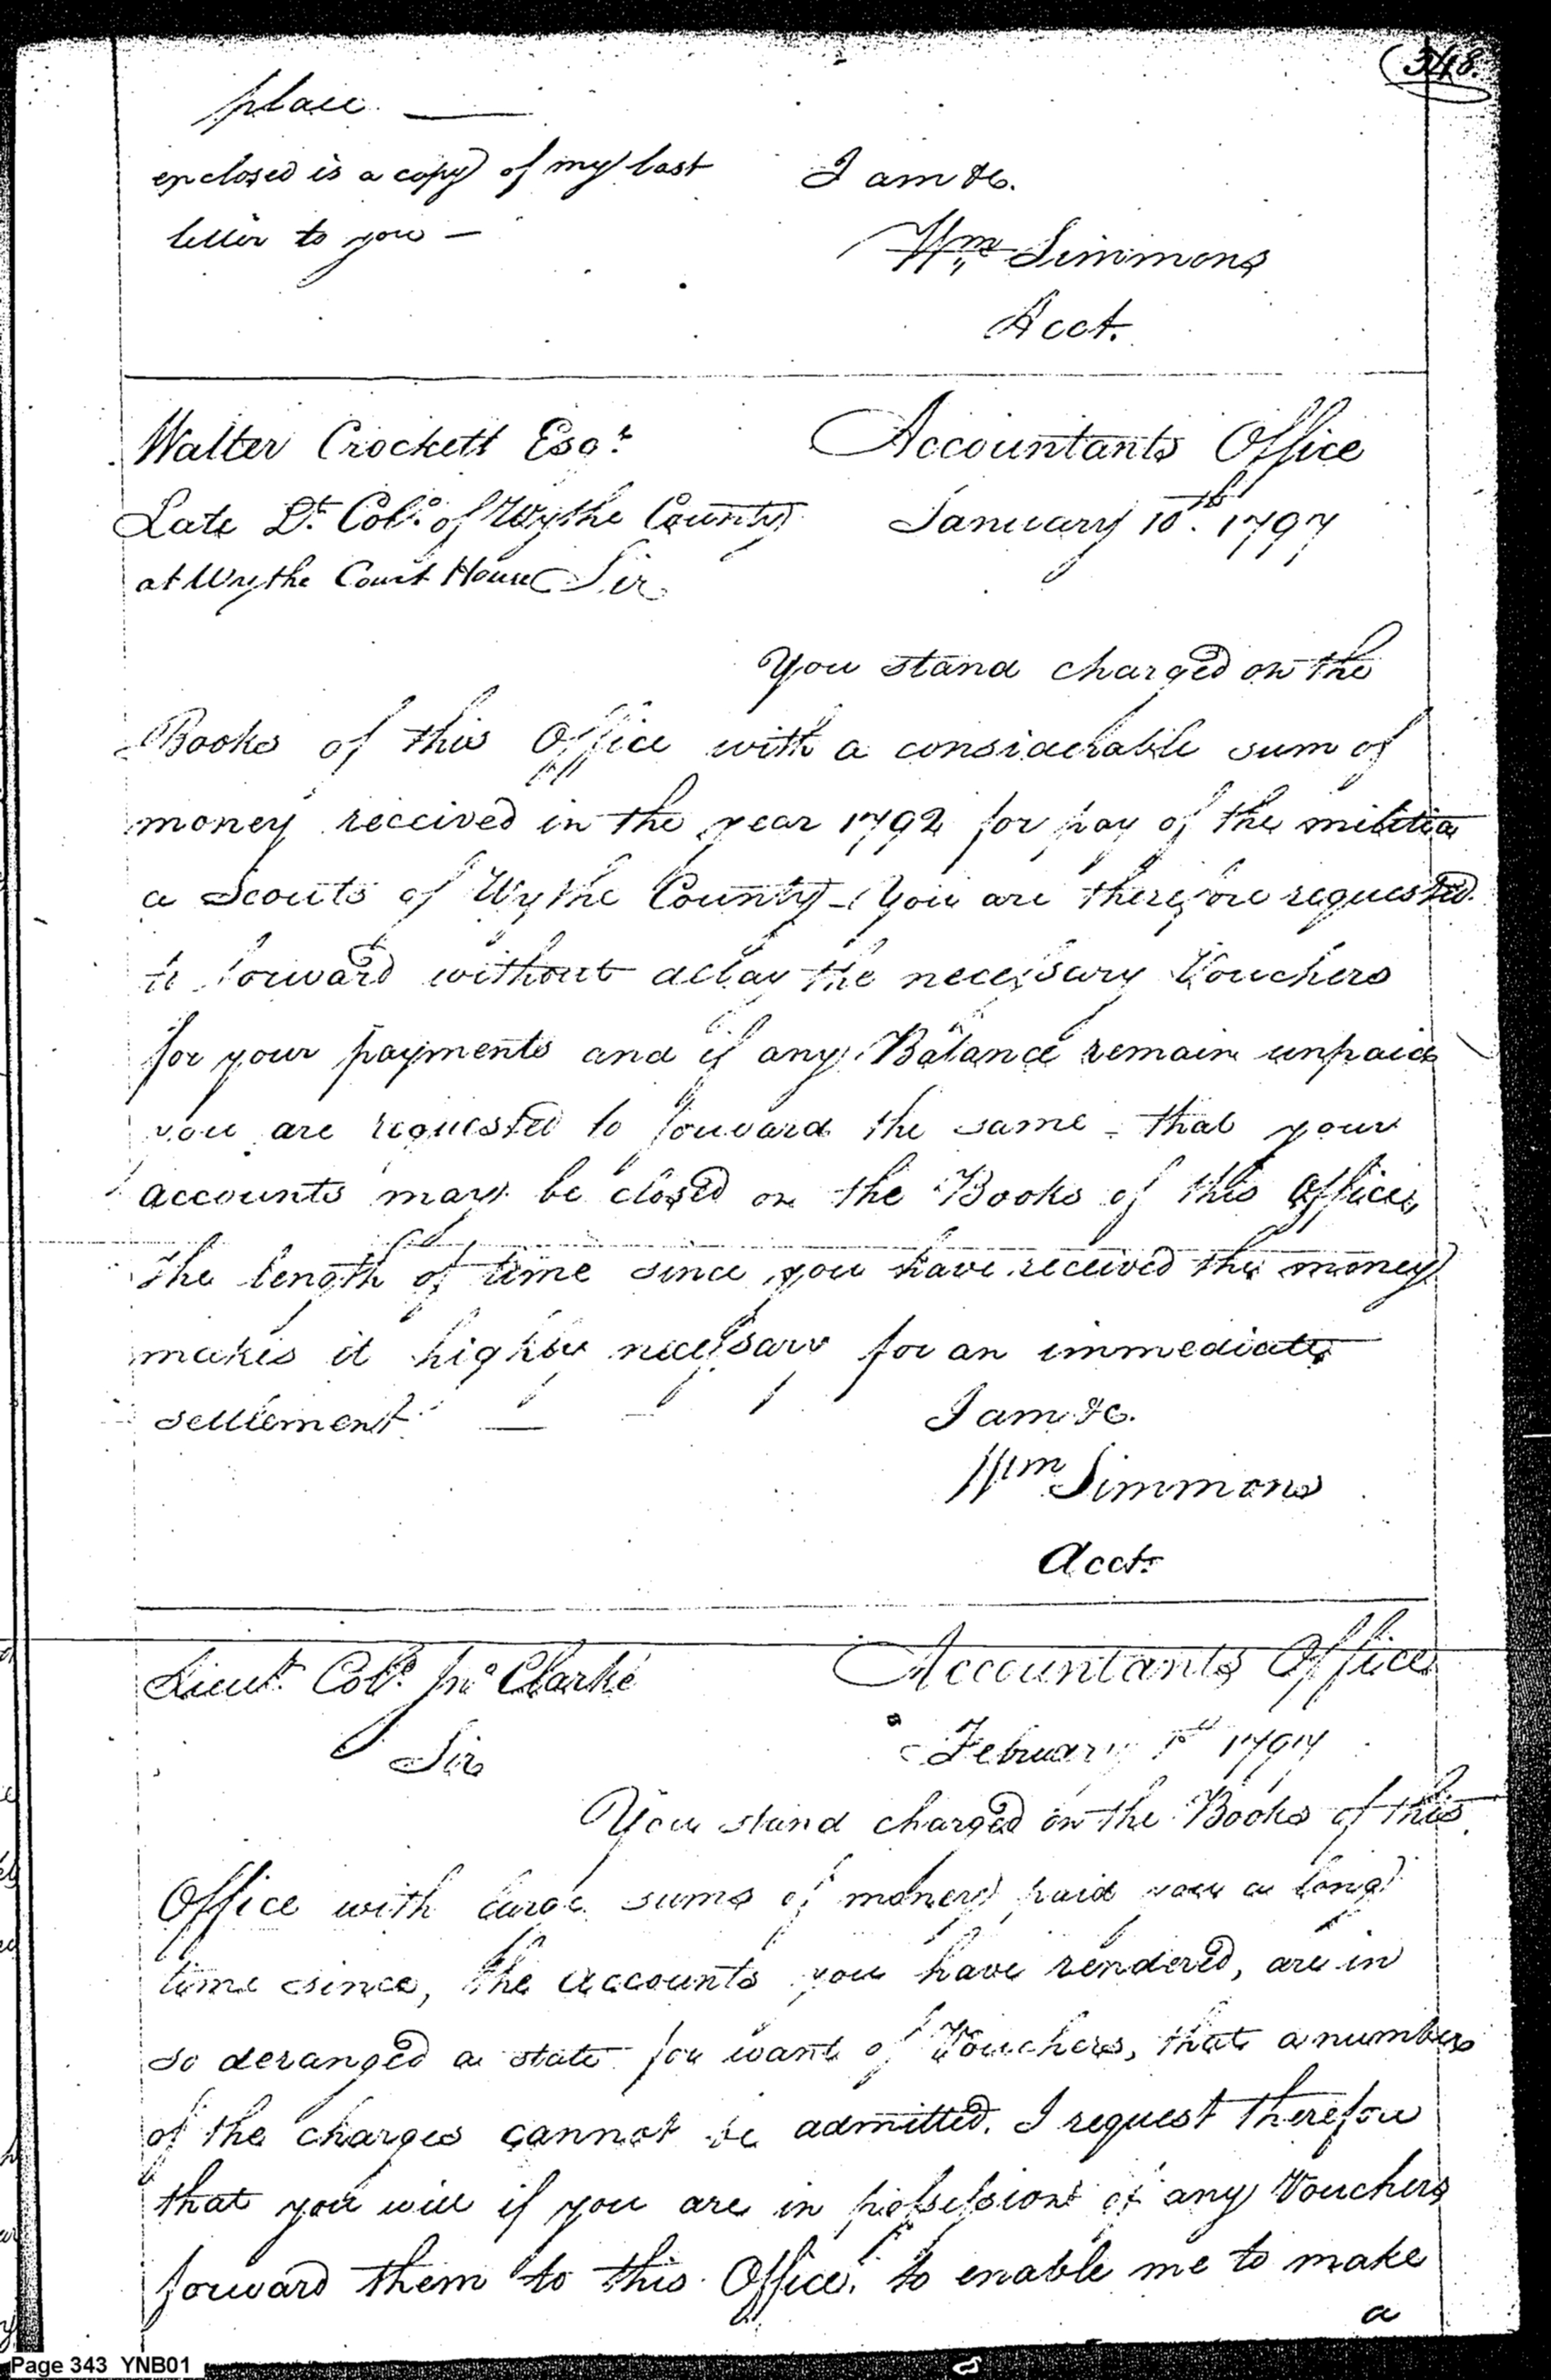 348.
place. —
enclosed is a copy of my last
letter to you —
I am &c.
Wm Simmons
Acct.
Walter Crockett Esqr
Late Lt. Colo. of Wythe County
at Wythe Court House Sir
Accountants Office
January 10th. 1797
You stand charged on the
Books of this Office with a considerable sum of
money received in the year 1792 for pay of the militia
a Scouts of Wythe County - You are therefore requested
to forward without delay the necessary Vouchers
for your payments and if any Balance remain unpaid
you are requested to forward the same - that your
accounts may be closed on the Books of this Office,
The length of time since you have received the money
makes it highly necessary for an immediate
settlement. —
I am &c.
Wm Simmons
Acct.
Lieut. Colo. Jno Clarke
Sir
Accountants Office
February 1st 1797
You stand charged on the Books of this
Office with large sums of money paid you a long
time since, the accounts you have rendered, are in
so deranged a state for want of Vouchers, that a number
of the charges cannot be admitted. I request therefore
that you will if you are in possession of any Vouchers
forward them to this Office, to enable me to make
a
Page 343 YNB01